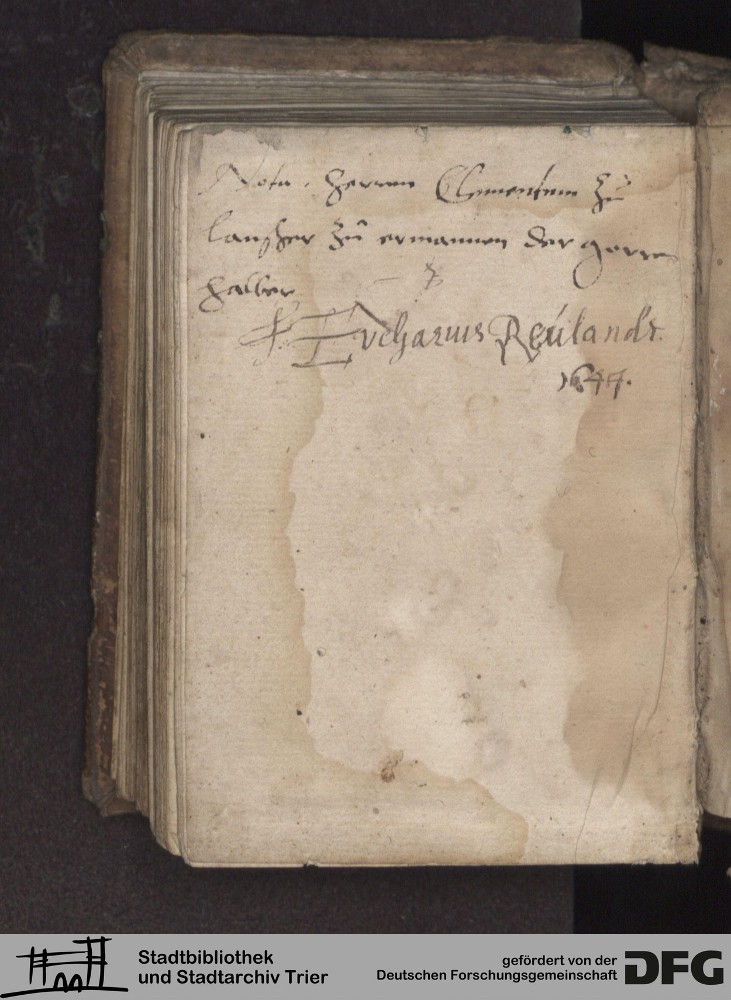 Nota. Herren Clementem zů
zů ermannen der
halber
F. Eucharius Reülandt.
1647.
Stadtbibliothek
und Stadtarchiv Trier
gefördert von der
Deutschen Forschungsgemeinschaft
DFG